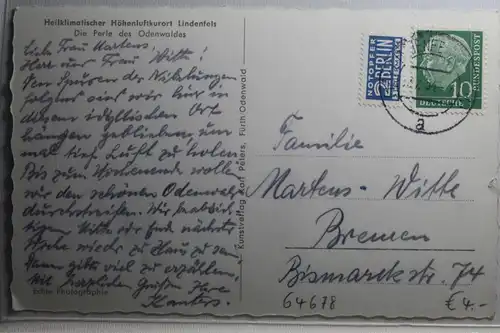 Heilklimatischer Höhenluftkurort Lindenfels
Die Perle des Odenwaldes
Liebe Frau Martens,
Herr und Frau Witte!
Den Spuren der Nibelungen
folgend sind wir hier in
diesem idyllischen Ort
hängen geblieben, um
mal tief Luft zu holen.
Bis zum Wochenende wollen
wir den schönen Odenwald
durchstreifen. Wir beabsich-
tigen, Mitte oder Ende nächster
Woche wieder zu Haus zu sein.
Dann gibts viel zu erzählen.
Mit herzlichen Grüßen Ihre
Echte Photographie
Kunstverlag Karl Peters, Fürth/Odenwald
NOTOPFER
2 BERLIN
STEUERMARKE
DEUTSCHE
BUNDESPOST
10
a
Familie
Martens-Witte
Bremen
Bismarckstr. 74
64678
€ 4.-